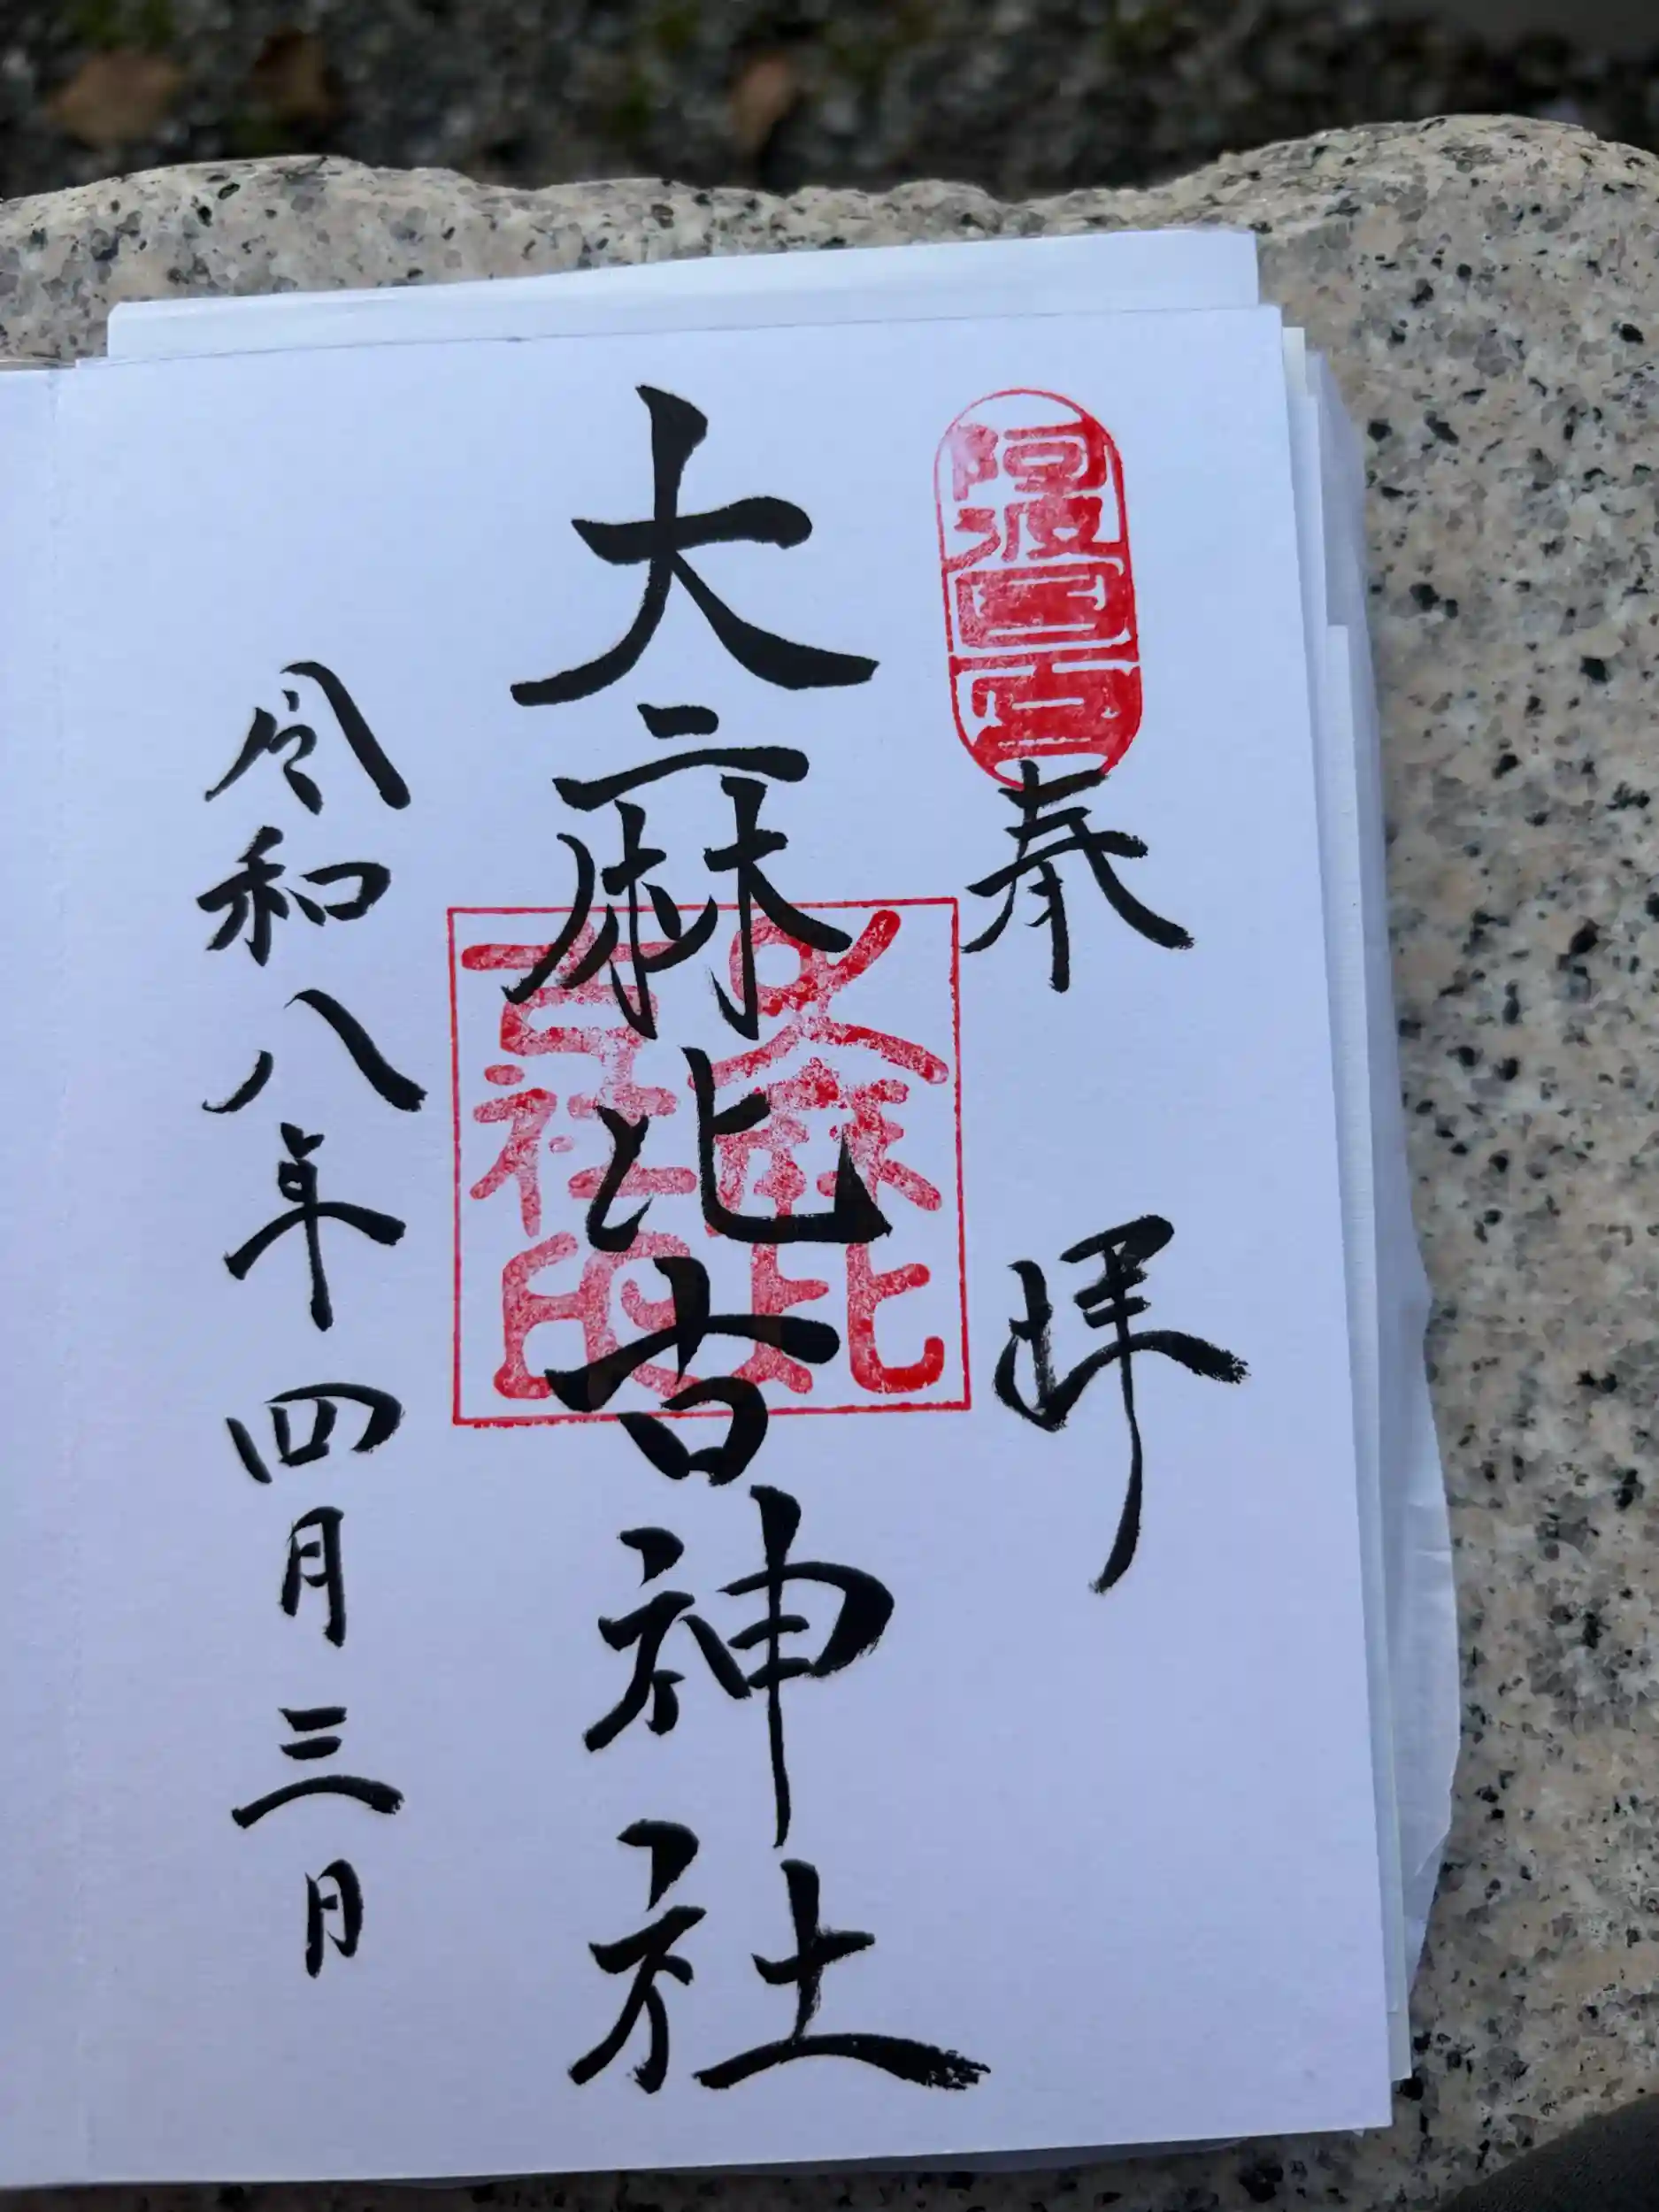 阿波国一宮
奉拝
大麻比古神社
大麻比
古社印
令和八年四月三日